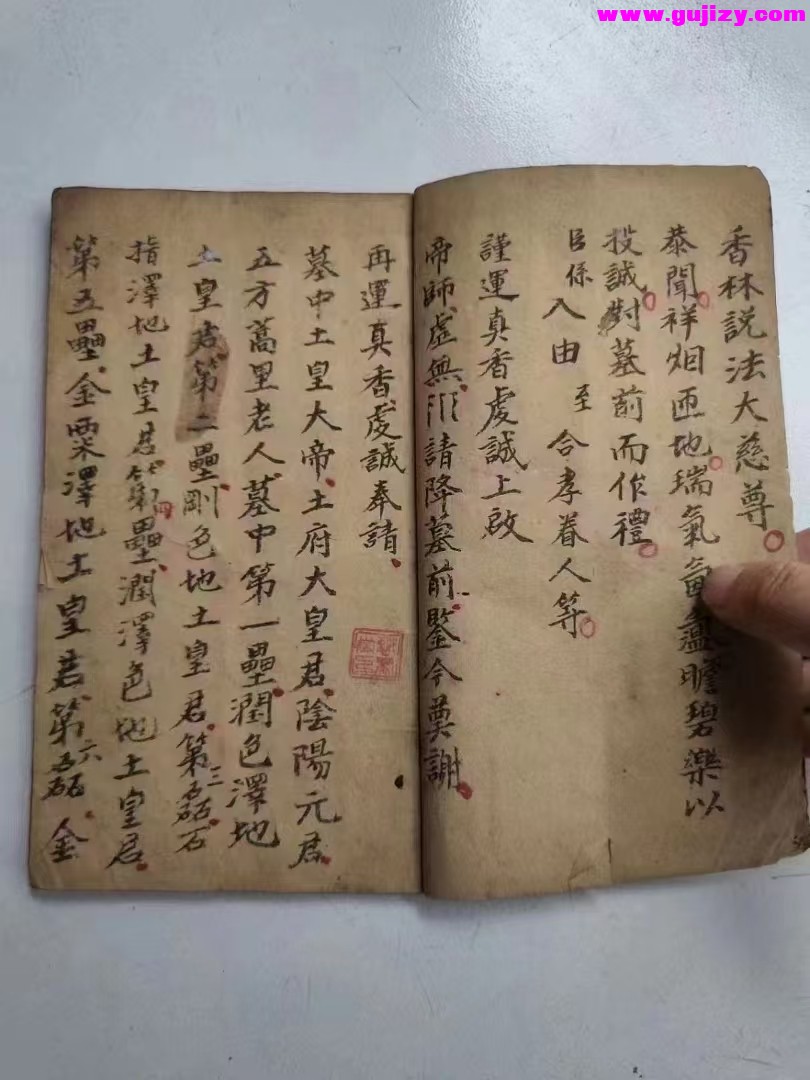 www.gujizy.com
香林説法大慈尊
恭聞祥烟匝地瑞氣氤氳瞻碧樂以
投誠對墓前而作禮
臣係入由至合孝眷人等
謹運真香虔誠上啟
帝師虛無請降墓前鑒今奠謝
再運真香虔誠奉請
墓中土皇大帝土府大皇君陰陽元君
五方蒿里老人墓中第一壘潤色澤地
土皇君第二壘剛色地土皇君第三磊石
指澤地土皇君第四壘潤澤色地土皇君
第五壘金粟澤地土皇君第六磊金